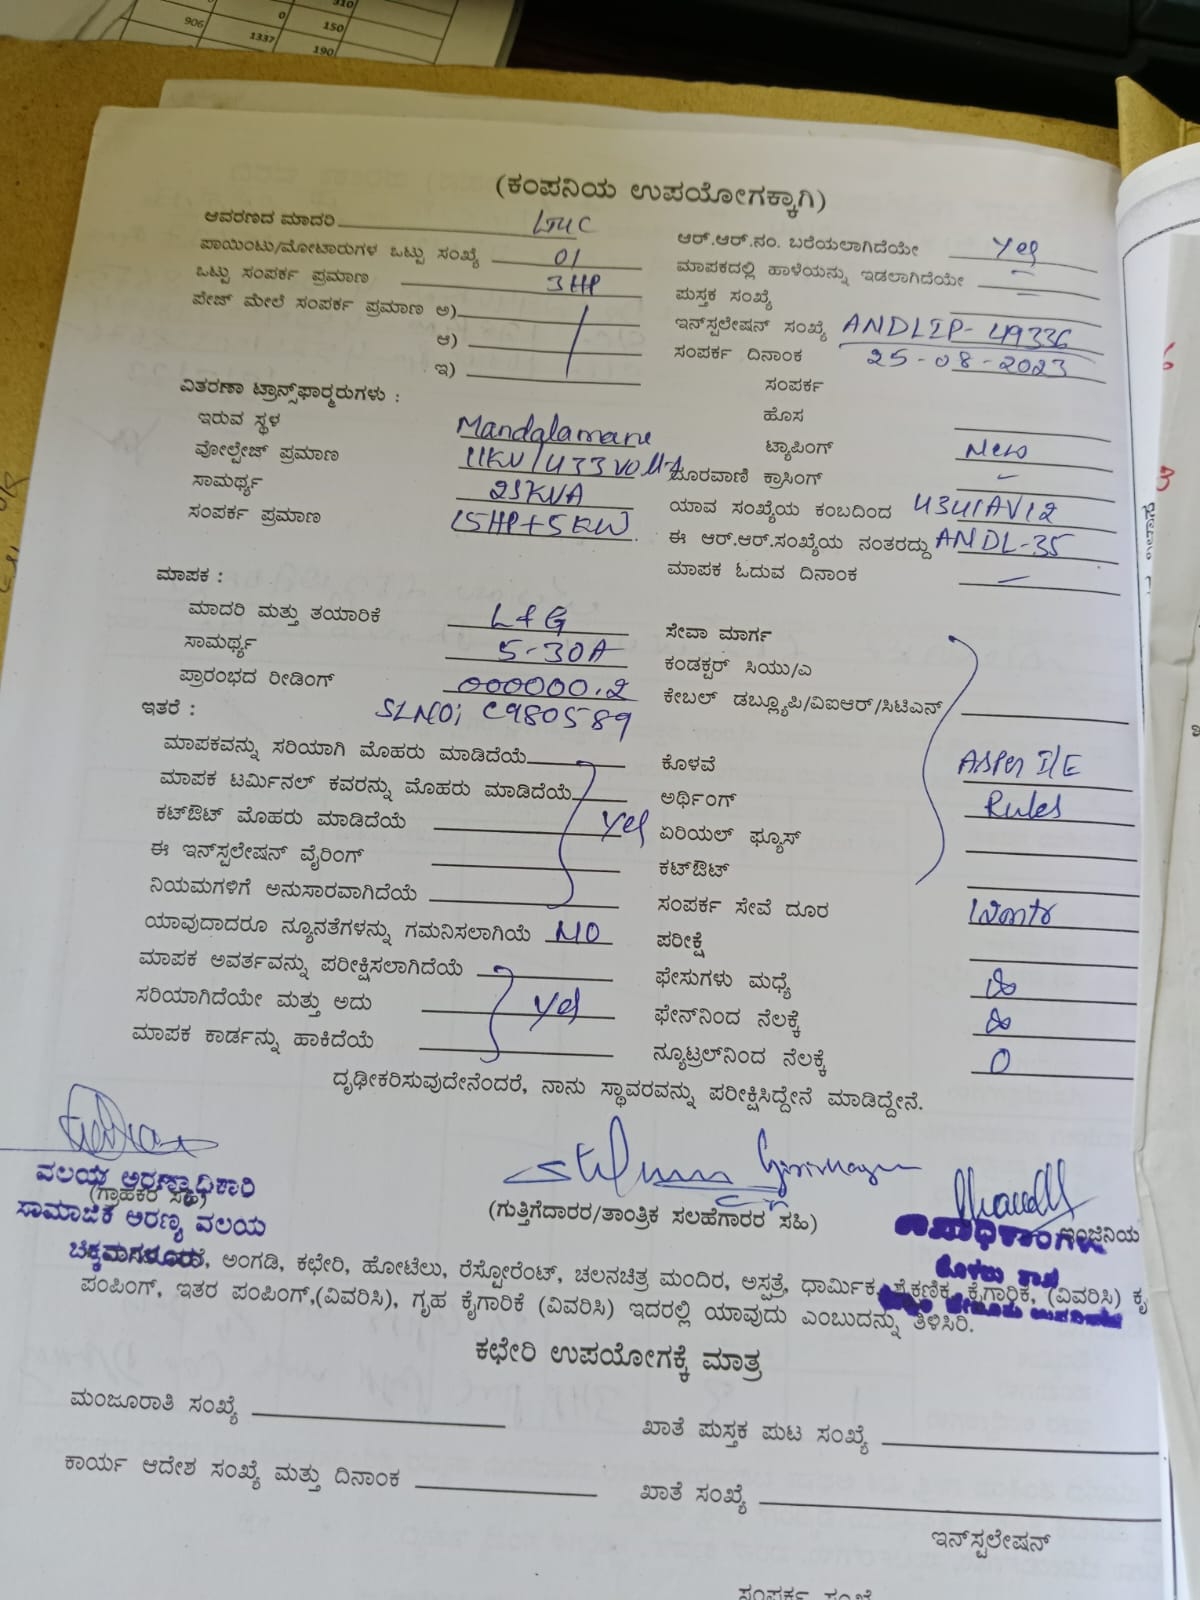 310
906 0 150
1337 190
(ಕಂಪನಿಯ ಉಪಯೋಗಕ್ಕಾಗಿ)
ಆವರಣದ ಮಾದರಿ
ಆರ್.ಆರ್.ನಂ. ಬರೆಯಲಾಗಿದೆಯೇ Yes
ಪಾಯಿಂಟು/ಮೋಟಾರುಗಳ ಒಟ್ಟು ಸಂಖ್ಯೆ 01
ಮಾಪಕದಲ್ಲಿ ಹಾಳೆಯನ್ನು ಇಡಲಾಗಿದೆಯೇ
ಒಟ್ಟು ಸಂಪರ್ಕ ಪ್ರಮಾಣ 3HP
ಪುಸ್ತಕ ಸಂಖ್ಯೆ
ಪೇಜ್ ಮೇಲೆ ಸಂಪರ್ಕ ಪ್ರಮಾಣ ಅ)
ಇನ್‌ಸ್ಟಲೇಷನ್ ಸಂಖ್ಯೆ ANDLIP-49336
ಆ)
ಸಂಪರ್ಕ ದಿನಾಂಕ 25-08-2023
ಇ)
ಸಂಪರ್ಕ
ವಿತರಣಾ ಟ್ರಾನ್ಸ್‌ಫಾರ್‍ಮರುಗಳು :
ಹೊಸ
ಇರುವ ಸ್ಥಳ Mandalamane
ಟ್ಯಾಪಿಂಗ್ New
ವೋಲ್ಟೇಜ್ ಪ್ರಮಾಣ 11KV/433 Volts
ದೂರವಾಣಿ ಕ್ರಾಸಿಂಗ್
ಸಾಮರ್ಥ್ಯ 25KVA
ಯಾವ ಸಂಖ್ಯೆಯ ಕಂಬದಿಂದ
ಸಂಪರ್ಕ ಪ್ರಮಾಣ 15HP+5KW
ಈ ಆರ್.ಆರ್.ಸಂಖ್ಯೆಯ ನಂತರದ್ದು ANDL-35
ಮಾಪಕ ಓದುವ ದಿನಾಂಕ
ಮಾಪಕ :
ಮಾದರಿ ಮತ್ತು ತಯಾರಿಕೆ L&G
ಸೇವಾ ಮಾರ್ಗ
ಸಾಮರ್ಥ್ಯ 5-30A
ಕಂಡಕ್ಟರ್ ಸಿಯು/ಎ
ಪ್ರಾರಂಭದ ರೀಡಿಂಗ್ 000000.2
ಕೇಬಲ್ ಡಬ್ಲ್ಯೂಪಿ/ವಿಐಆರ್/ಸಿಟಿಎನ್
ಇತರೆ : SLNO; C980589
ಮಾಪಕವನ್ನು ಸರಿಯಾಗಿ ಮೊಹರು ಮಾಡಿದೆಯೆ
ಕೊಳವೆ Asper I/E
ಮಾಪಕ ಟರ್ಮಿನಲ್ ಕವರನ್ನು ಮೊಹರು ಮಾಡಿದೆಯೆ
ಅರ್ಥಿಂಗ್ Rules
ಕಟ್‌ಔಟ್ ಮೊಹರು ಮಾಡಿದೆಯೆ Yes
ಏರಿಯಲ್ ಫ್ಯೂಸ್
ಈ ಇನ್‌ಸ್ಟಲೇಷನ್ ವೈರಿಂಗ್
ಕಟ್‌ಔಟ್
ನಿಯಮಗಳಿಗೆ ಅನುಸಾರವಾಗಿದೆಯೆ
ಸಂಪರ್ಕ ಸೇವೆ ದೂರ
ಯಾವುದಾದರೂ ನ್ಯೂನತೆಗಳನ್ನು ಗಮನಿಸಲಾಗಿಯೆ NO
ಪರೀಕ್ಷೆ
ಮಾಪಕ ಅವರ್ತವನ್ನು ಪರೀಕ್ಷಿಸಲಾಗಿದೆಯೆ
ಫೇಸುಗಳು ಮಧ್ಯೆ ∞
ಸರಿಯಾಗಿದೆಯೇ ಮತ್ತು ಅದು Yes
ಫೇನ್‌ನಿಂದ ನೆಲಕ್ಕೆ ∞
ಮಾಪಕ ಕಾರ್ಡನ್ನು ಹಾಕಿದೆಯೆ
ನ್ಯೂಟ್ರಲ್‌ನಿಂದ ನೆಲಕ್ಕೆ 0
ದೃಢೀಕರಿಸುವುದೇನೆಂದರೆ, ನಾನು ಸ್ಥಾವರವನ್ನು ಪರೀಕ್ಷಿಸಿದ್ದೇನೆ ಮಾಡಿದ್ದೇನೆ.
ವಲಯ ಅರಣ್ಯಾಧಿಕಾರಿ
(ಗ್ರಾಹಕರ ಸಹಿ)
ಸಾಮಾಜಿಕ ಅರಣ್ಯ ವಲಯ
ಚಿಕ್ಕಮಗಳೂರು
(ಗುತ್ತಿಗೆದಾರರ/ತಾಂತ್ರಿಕ ಸಲಹೆಗಾರರ ಸಹಿ)
ಇಂಜಿನಿಯ
ಅಂಗಡಿ, ಕಛೇರಿ, ಹೋಟೆಲು, ರೆಸ್ಟೋರೆಂಟ್, ಚಲನಚಿತ್ರ ಮಂದಿರ, ಅಸ್ಪತ್ರೆ, ಧಾರ್ಮಿಕ, ಶೈಕ್ಷಣಿಕ, ಕೈಗಾರಿಕೆ, (ವಿವರಿಸಿ) ಕೃ
ಪಂಪಿಂಗ್, ಇತರ ಪಂಪಿಂಗ್,(ವಿವರಿಸಿ), ಗೃಹ ಕೈಗಾರಿಕೆ (ವಿವರಿಸಿ) ಇದರಲ್ಲಿ ಯಾವುದು ಎಂಬುದನ್ನು ತಿಳಿಸಿರಿ.
ಕಛೇರಿ ಉಪಯೋಗಕ್ಕೆ ಮಾತ್ರ
ಮಂಜೂರಾತಿ ಸಂಖ್ಯೆ
ಖಾತೆ ಪುಸ್ತಕ ಪುಟ ಸಂಖ್ಯೆ
ಕಾರ್ಯ ಆದೇಶ ಸಂಖ್ಯೆ ಮತ್ತು ದಿನಾಂಕ
ಖಾತೆ ಸಂಖ್ಯೆ
ಇನ್‌ಸ್ಟಲೇಷನ್
ಸಂಪರ್ಕ ಸಂಖ್ಯೆ